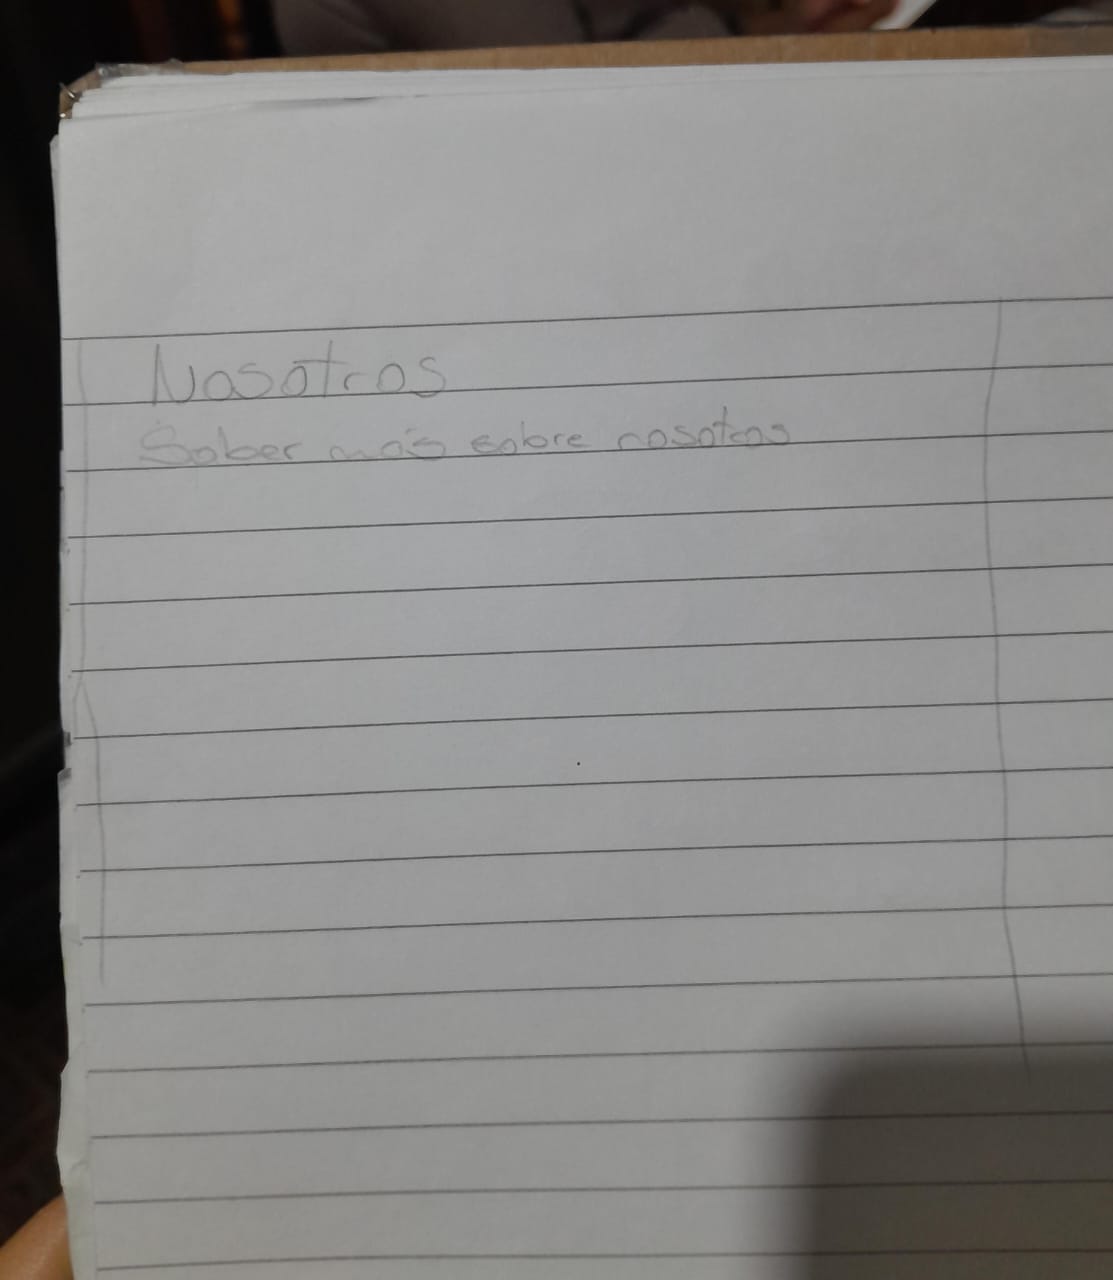 Nosotros
Saber más sobre nosotros